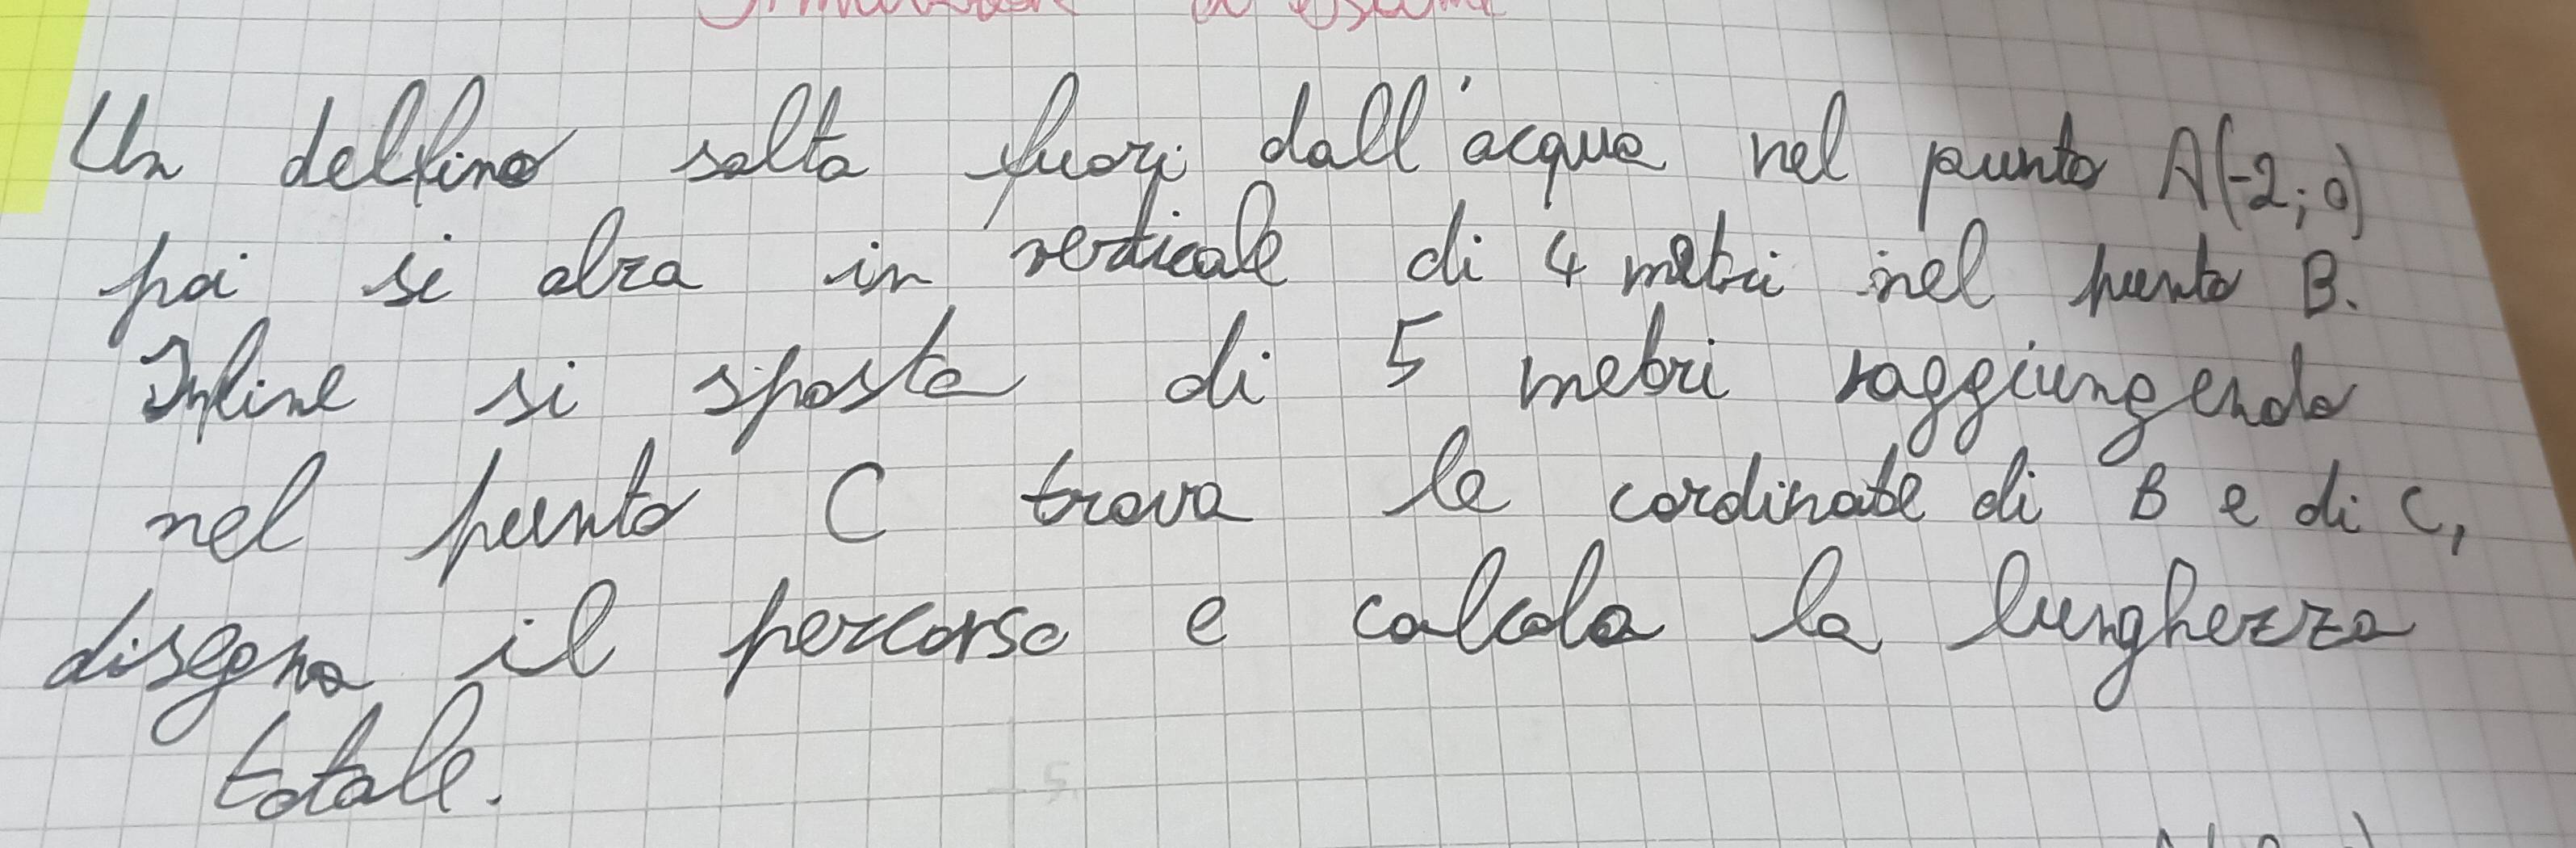 Un delfino salta fuori dall'acqua nel punto A(-2; 0)
poi si alza in verticale di 4 metri nel punto B.
Infine si sposta di 5 metri raggiungendo
nel punto C trova le cordinate di B e di C,
disegna il percorso e calcola la lunghezza
totale.
5